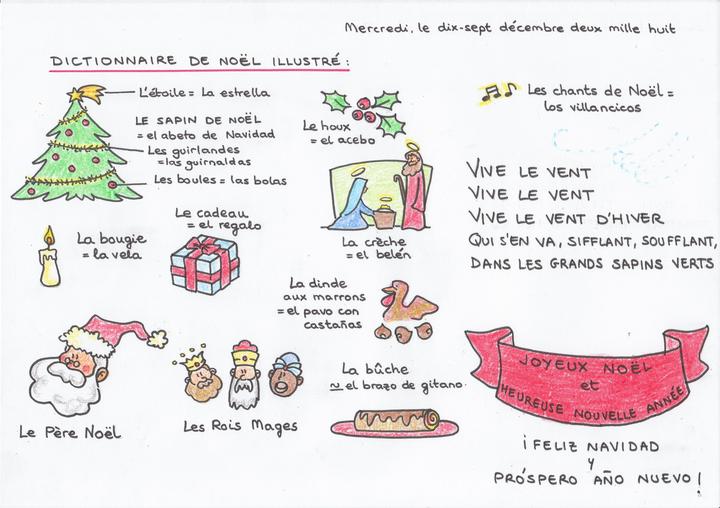 Mercredi, le dix-sept décembre deux mille huit
DICTIONNAIRE DE NOËL ILLUSTRÉ :
L'étoile = La estrella
LE SAPIN DE NOËL
= el abeto de Navidad
Les guirlandes
= las guirnaldas
Les boules = las bolas
Le houx
= el acebo
Les chants de Noël =
los villancicos
La bougie
= la vela
Le cadeau
= el regalo
La crèche
= el belén
VIVE LE VENT
VIVE LE VENT
VIVE LE VENT D'HIVER
QUI S'EN VA, SIFFLANT, SOUFFLANT,
DANS LES GRANDS SAPINS VERTS
La dinde
aux marrons
= el pavo con
castañas
Le Père Noël
Les Rois Mages
La bûche
≃ el brazo de gitano
JOYEUX NOËL
et
HEUREUSE NOUVELLE ANNÉE
¡FELIZ NAVIDAD
Y
PRÓSPERO AÑO NUEVO!